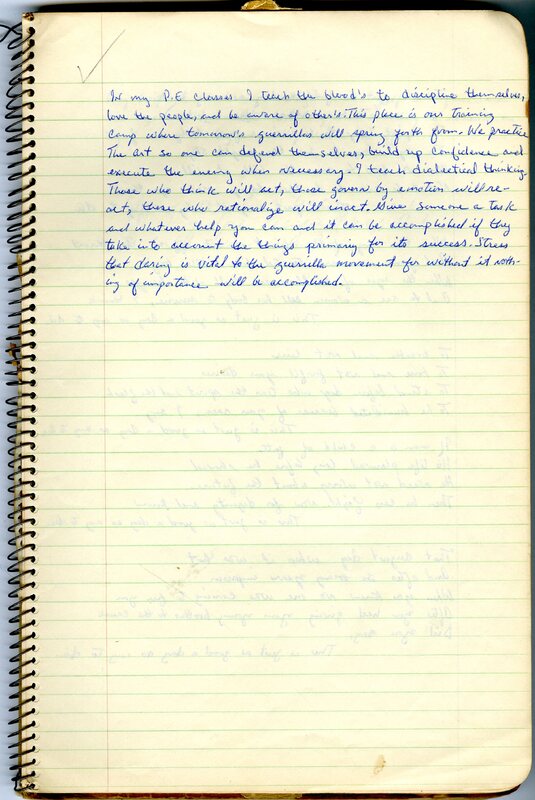 In my P.E classes I teach the blood's to discipline themselves,
love the people, and be aware of other's. This place is our training
camp where tomorrow's guerrillas will spring forth from. We practice
The art so one can defend themselves, build up confidence and
execute the enemy when necessary. I teach dialectical thinking.
Those who think will act, those govern by emotion will re-
act, those who rationalize will inact. Give someone a task
and whatever help you can and it can be accomplished if they
take into account the things primary for its success. Stress
that daring is vital to the guerrilla movement for without it noth-
ing of importance will be accomplished.